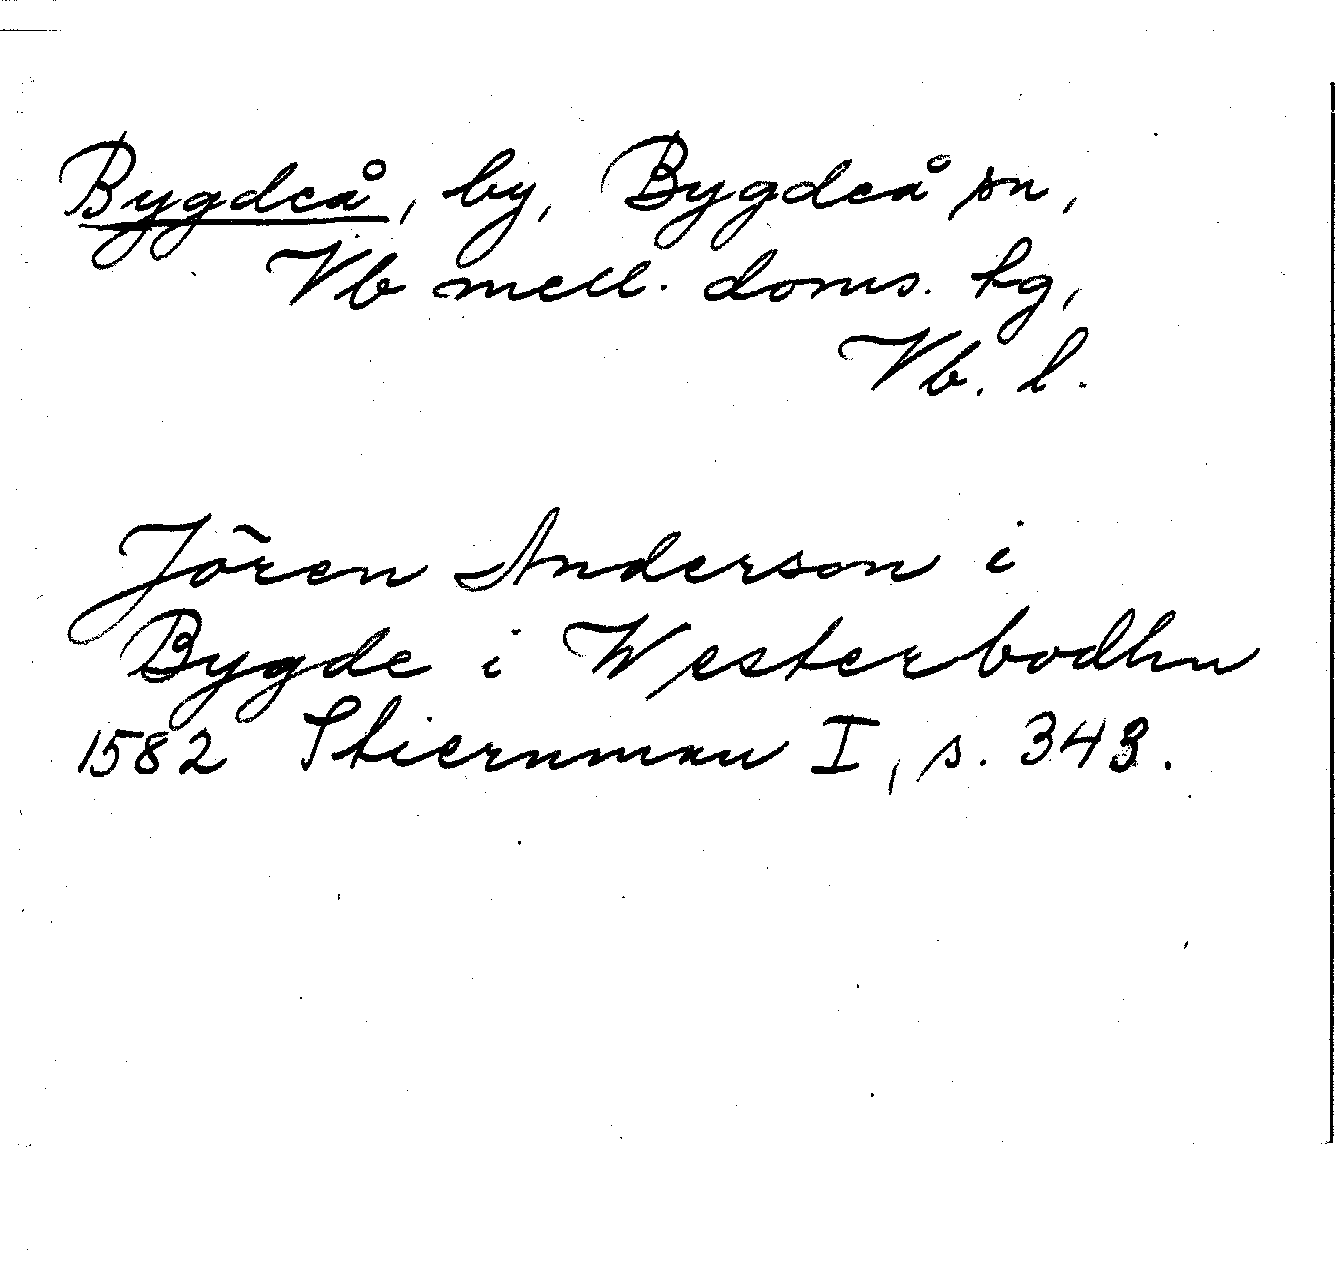 Bygdeå, by, Bygdeå sn,
Vb mell. doms. tg,
Vb. l.
Jören Anderson i
Bygde i Westerbodhn
1582 Stiernman I, s. 343.